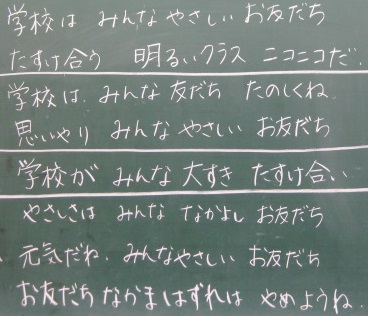 学校は みんな やさしい お友だち
たすけ合う 明るいクラス ニコニコだ.
学校は. みんな 友だち たのしくね
思いやり みんな やさしい お友だち
学校が みんな 大すき たすけ合い
やさしさは みんな なかよし お友だち
元気だね. みんなやさしい お友だち
お友だち なかまはずれは やめようね.